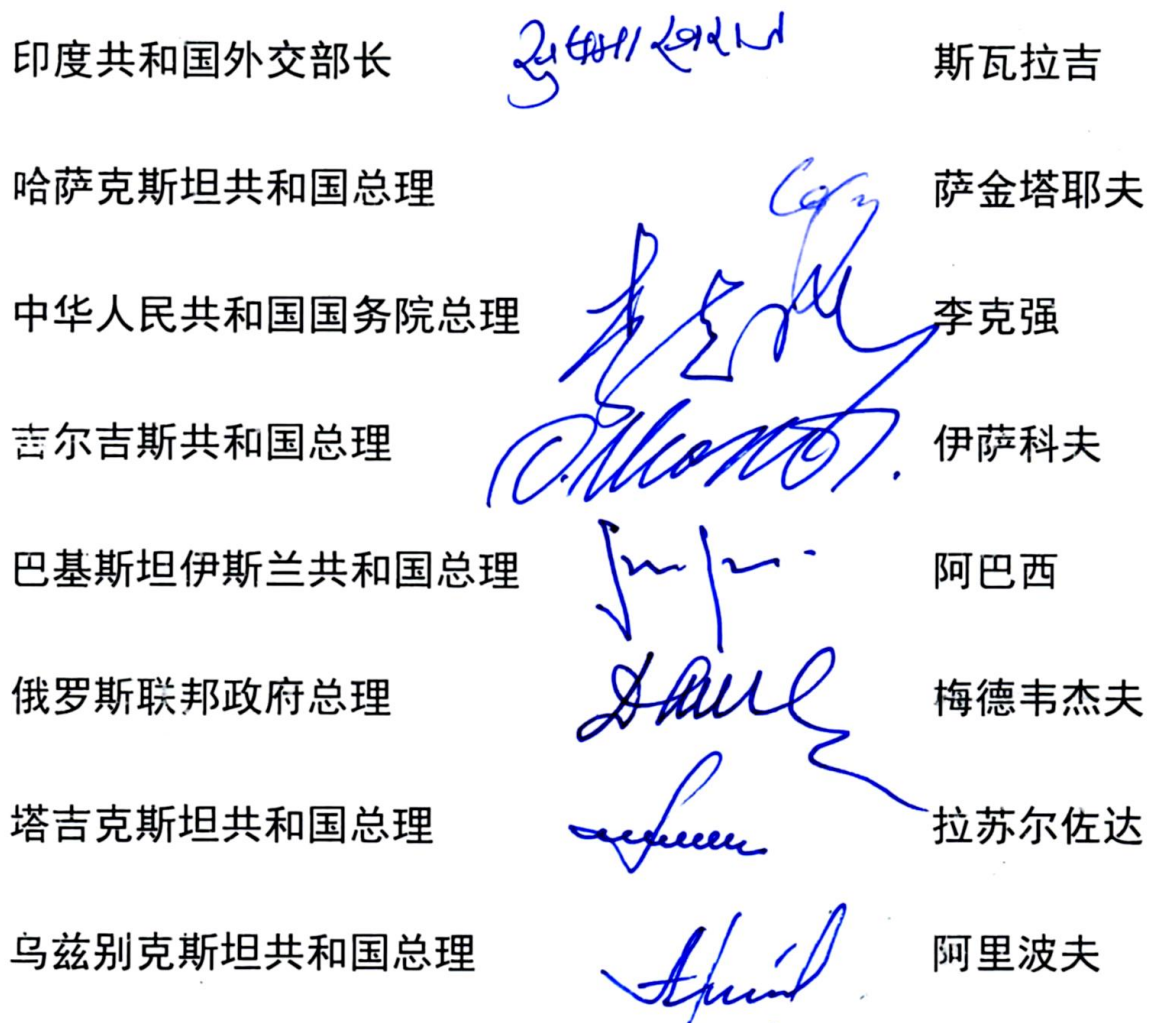 印度共和国外交部长 सुषमा स्वराज 斯瓦拉吉
哈萨克斯坦共和国总理 萨金塔耶夫
中华人民共和国国务院总理 李克强 李克强
吉尔吉斯共和国总理 伊萨科夫
巴基斯坦伊斯兰共和国总理 阿巴西
俄罗斯联邦政府总理 梅德韦杰夫
塔吉克斯坦共和国总理 拉苏尔佐达
乌兹别克斯坦共和国总理 阿里波夫